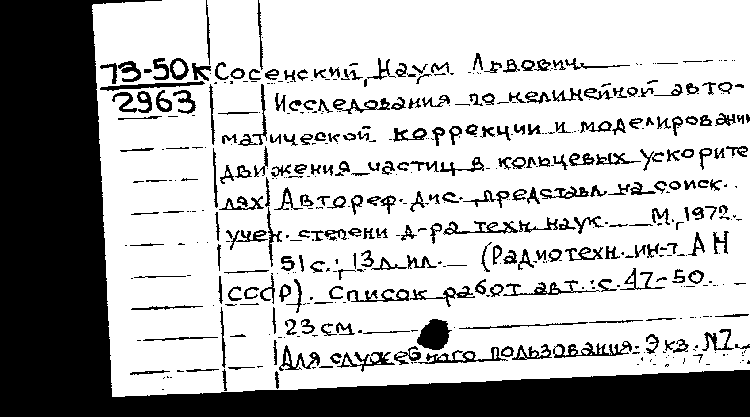 73-50к Сосенский, Наум Львович.
2963 Исследования по нелинейной авто-
матической коррекции и моделировании
движения частиц в кольцевых ускорите
лях. Автореф. дис., представл. на соиск.
учен. степени д-ра техн. наук. М., 1972.
51 с.; 13 л. ил. (Радиотехн. ин-т АН
СССР). Список работ авт.: с. 47-50.
23 см.
Для служебного пользования. Экз. №7.